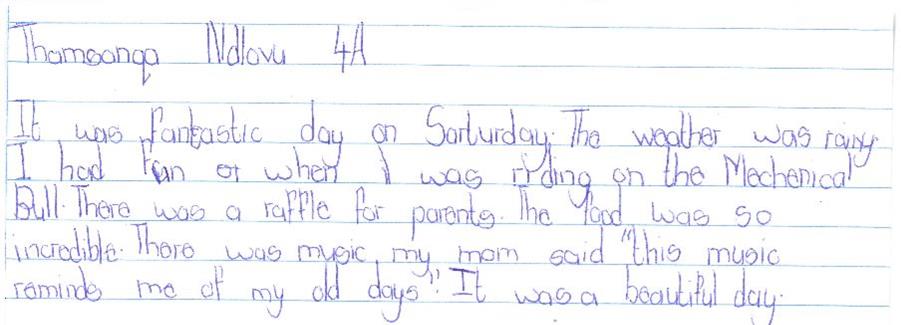 Thamsanqa Ndlovu 4A
It was fantastic day on Sarturday. The weather was rainy.
I had fun of when I was riding on the Mechenical
Bull. There was a raffle for parents. The food was so
incredible. There was music, my mom said "this music
reminds me of my old days". It was a beautiful day.